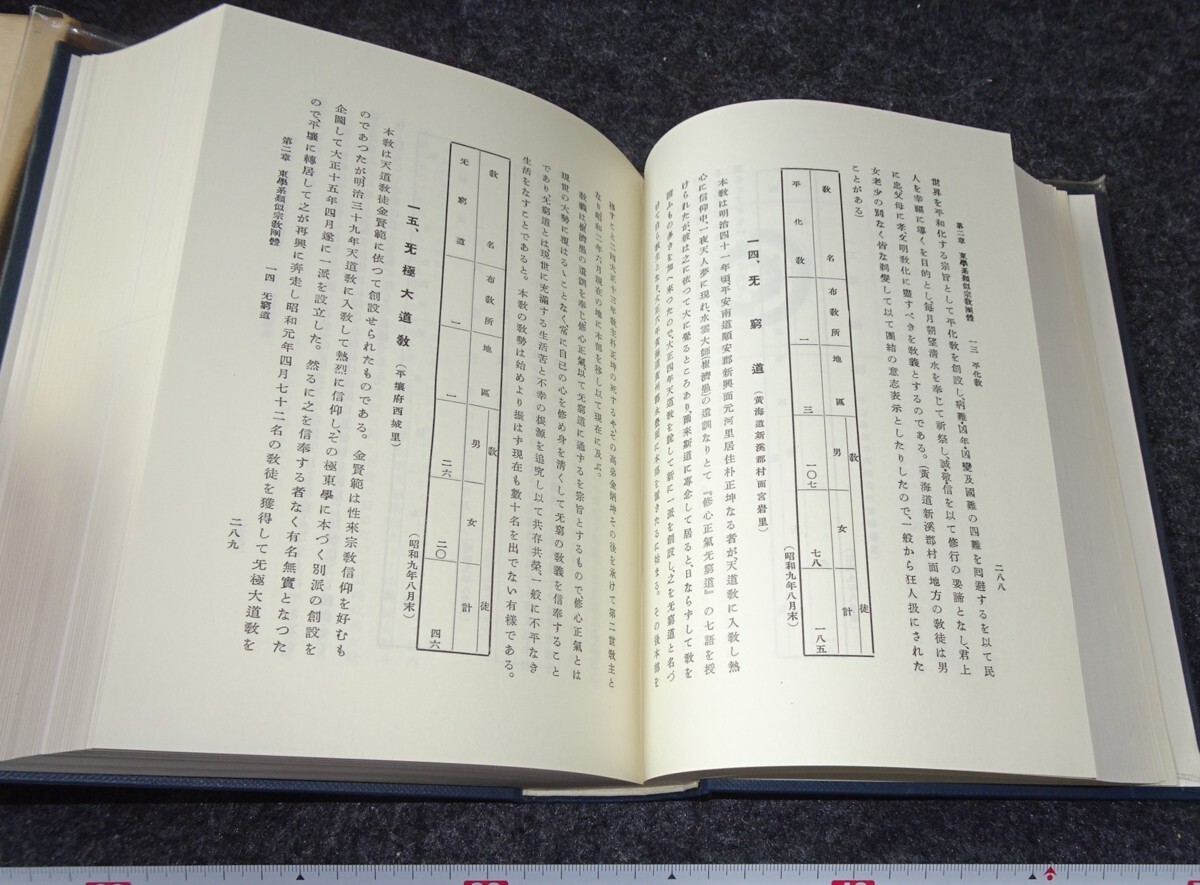 第二章 東學系類似宗敎團體 一三 平化敎 二八八
世界を平和化する宗旨として平化敎を創設し、病難・凶年・凶變及國難の四難を囘避するを以て民
人を幸福に導くを目的とし毎月朔望清水を奉じて祈祭し、誠・敬・信を以て修行の要諦となし、君上
に忠父母に孝文明敎化に盡すべきを敎義とするのである。(黃海道新溪郡村面地方の敎徒は男
女老少の別なく皆な剃髮して以て團結の意志表示としたりしたので、一般から狂人扱にされた
ことがある)
敎名 布敎所 地區 敎徒 男 女 計
平化敎 一 三 一〇七 七八 一八五
(昭和九年八月末)
一四、无窮道 (黃海道新溪郡村面宮岩里)
本敎は明治四十一年頃、平安南道順安郡新興面元河里居住朴正坤なる者が、天道敎に入敎し熱
心に信仰中、一夜天人夢に現れ、水雲大師(崔濟愚)の遺訓なりとて『修心正氣无窮道』の七語を授
けられたが、彼は之に依つて大に覺るところあり、爾來斯道に專念して居ると、日ならずして敎を
移すこと二回大正十三年敎主朴正坤の死するや、その高弟金炳坤その後を承けて第二世敎主と
なり昭和二年六月現在の地に本部を移し以て現在に及ぶ。
敎義は崔濟愚の遺訓を奉じ修心正氣以て无窮道に通ずるを宗旨とするもので修心正氣とは
現世の大勢に覆はるゝことなく常に自己の心を修め身を清くして无窮の敎義を信奉すること
であり无窮道とは、現世に充滿する生活苦と不幸の根源を追究し以て共存共榮、一般に不平なき
生活をなすことであると。本敎の敎勢は始めより振はず現在も數十名を出でない有樣である。
敎名 布敎所 地區 敎徒 男 女 計
无窮道 一 一 二六 二〇 四六
(昭和九年八月末)
一五、无極大道敎 (平壤府西城里)
本敎は天道敎徒金賢範に依つて創設せられたものである。金賢範は性來宗敎信仰を好むも
のであつたが明治三十九年天道敎に入敎して熱烈に信仰し、その極東學に本づく別派の創設を
企圖して大正十五年四月遂に一派を設立した。然るに之を信奉する者なく有名無實となつた
ので、平壤に轉居して之が再興に奔走し昭和元年四月七十二名の敎徒を獲得して无極大道敎を
第二章 東學系類似宗敎團體 一四 无窮道 二八九